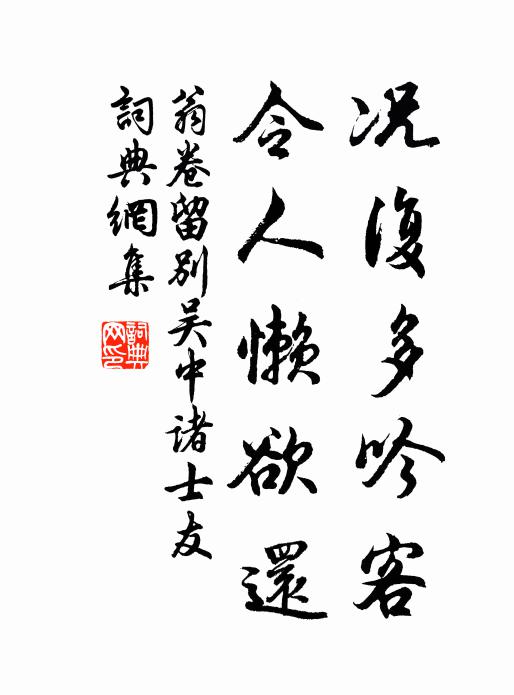 况復多吟客
令人懶欲還
翁卷留別吴中诸士友
詞典網集
詞典網印